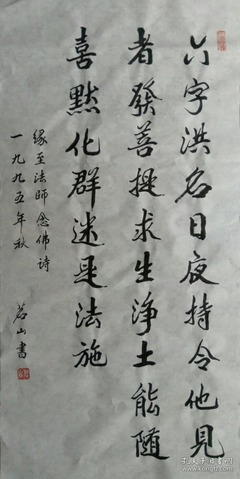 六字洪名日夜持令他見
者發菩提求生淨土能隨
喜默化群迷是法施
緣至法師念佛诗
一九九五年秋
茗山書